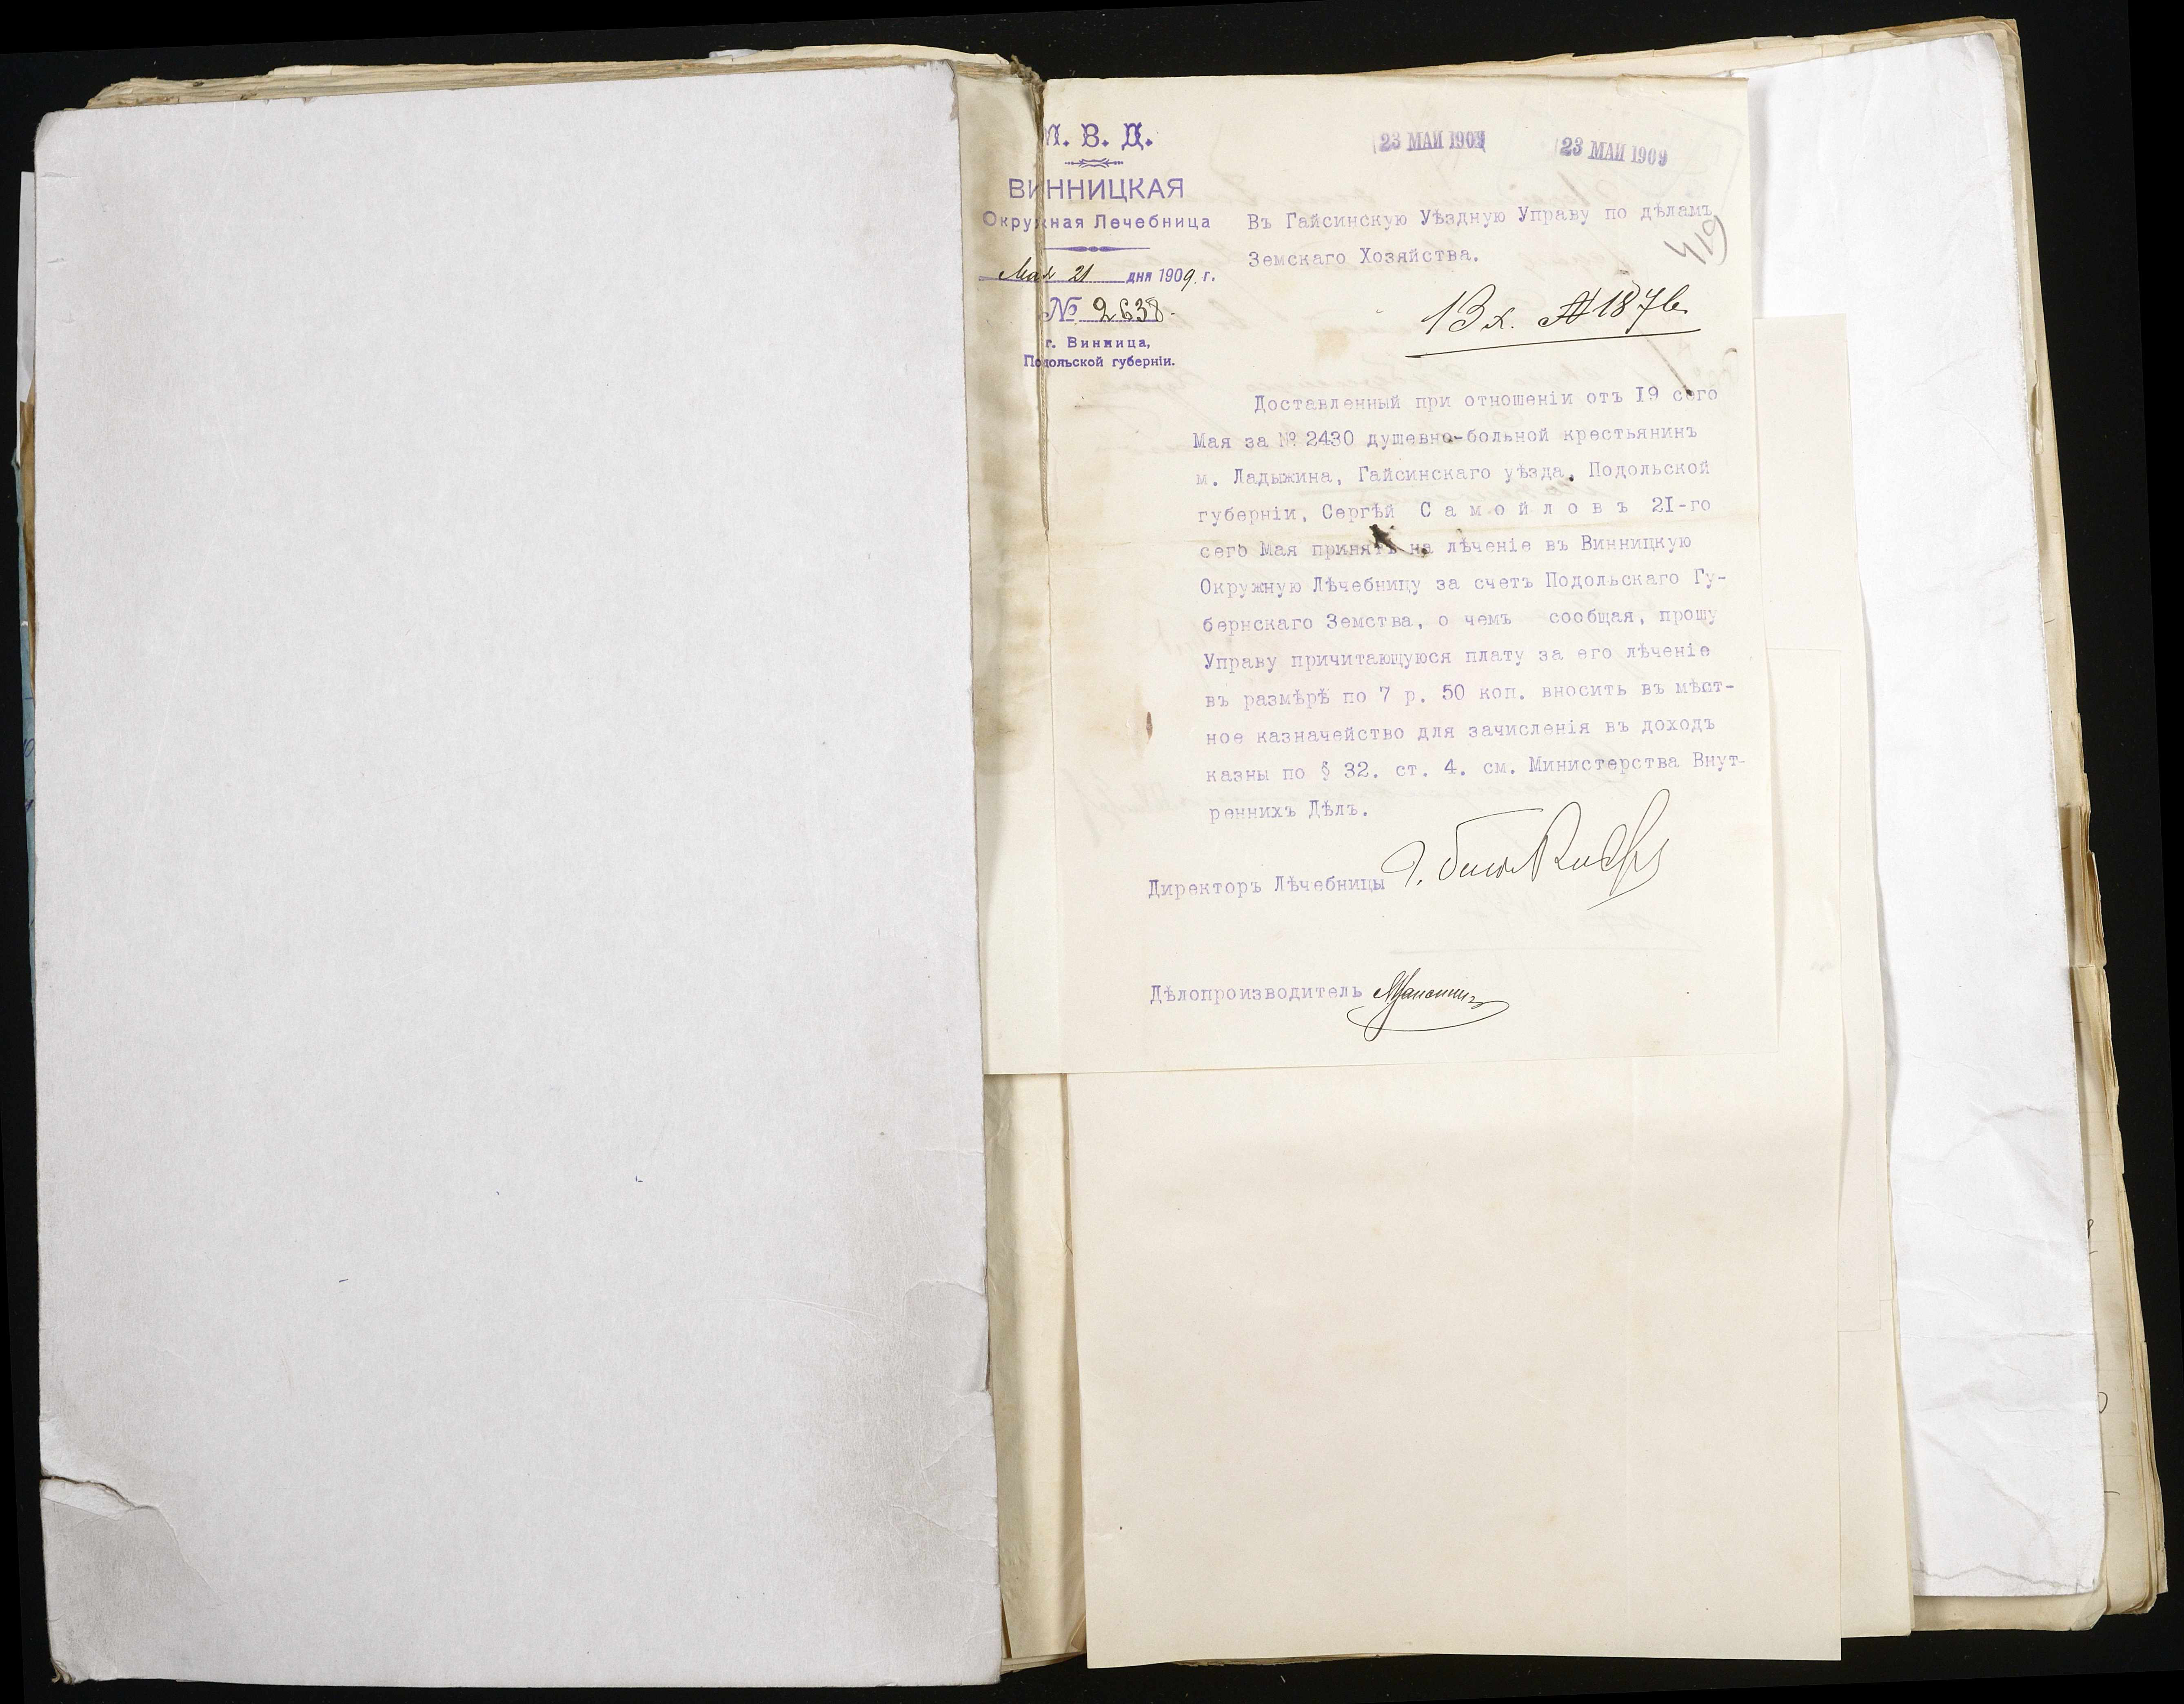 М. В. Д.
ВИННИЦКАЯ
Окружная Лечебница
Мая 21 дня 1909. г.
№ 2638.
г. Винница,
Подольской губерніи.
23 МАЙ 1909
23 МАЙ 1909
Въ Гайсинскую Уѣздную Управу по дѣламъ
Земскаго Хозяйства.
419
Вх. № 1876
Доставленный при отношеніи отъ I9 сего
Мая за № 2430 душевно-больной крестьянинъ
м. Ладыжина, Гайсинскаго уѣзда, Подольской
губерніи, Сергѣй С а м о й л о в ъ 2I-го
сего Мая принятъ на лѣченіе въ Винницкую
Окружную Лѣчебницу за счетъ Подольскаго Гу-
бернскаго Земства, о чемъ сообщая, прошу
Управу причитающуюся плату за его лѣченіе
въ размѣрѣ по 7 р. 50 коп. вносить въ мѣст-
ное казначейство для зачисленія въ доходъ
казны по § 32. ст. 4. см. Министерства Внут-
реннихъ Дѣлъ.
Директоръ Лѣчебницы
Дѣлопроизводитель